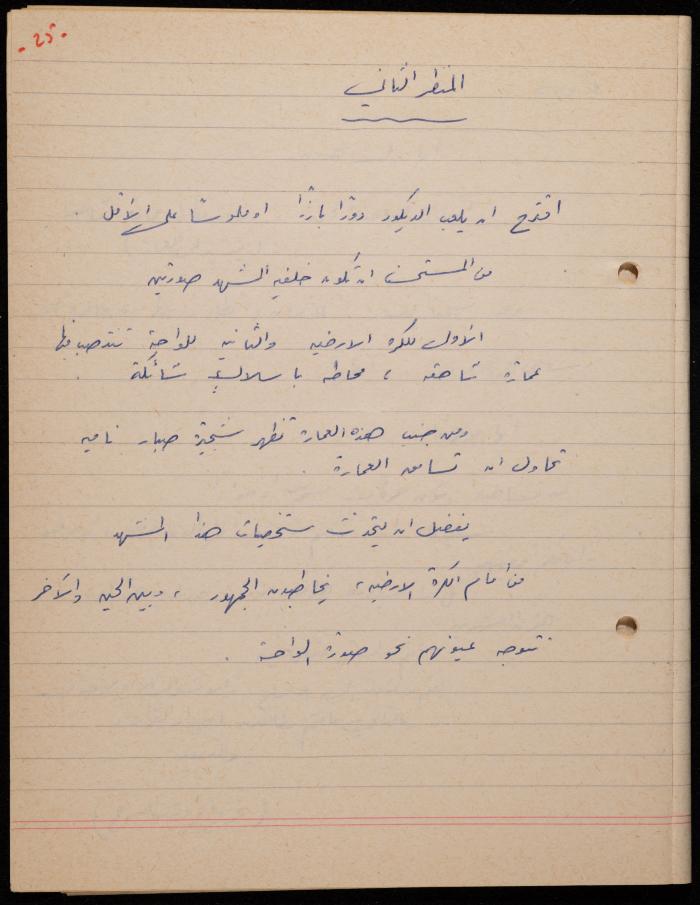 - 25 -
المنظر الثاني
اقترح ان يلعب الديكور دورًا بارزًا او ملموسًا على الأقل .
من المستحسن ان تكون خلفية المشهد صورتين
الأولى للكرة الارضيه والثانيه للواحة تنتصب فيها
عمارة شاهقه ، محاطه باسلاك شائكة .
ومن جنب هذه العمارة تظهر شجيرة صبار ناميه
تحاول ان تسامق العمارة .
يفضل ان يتحدث شخصيات هذا المشهد
من امام الكرة الارضيه ، يخاطبون الجمهور ، وبين الحين والآخر
تتوجه عيونهم نحو صورة الواحة .